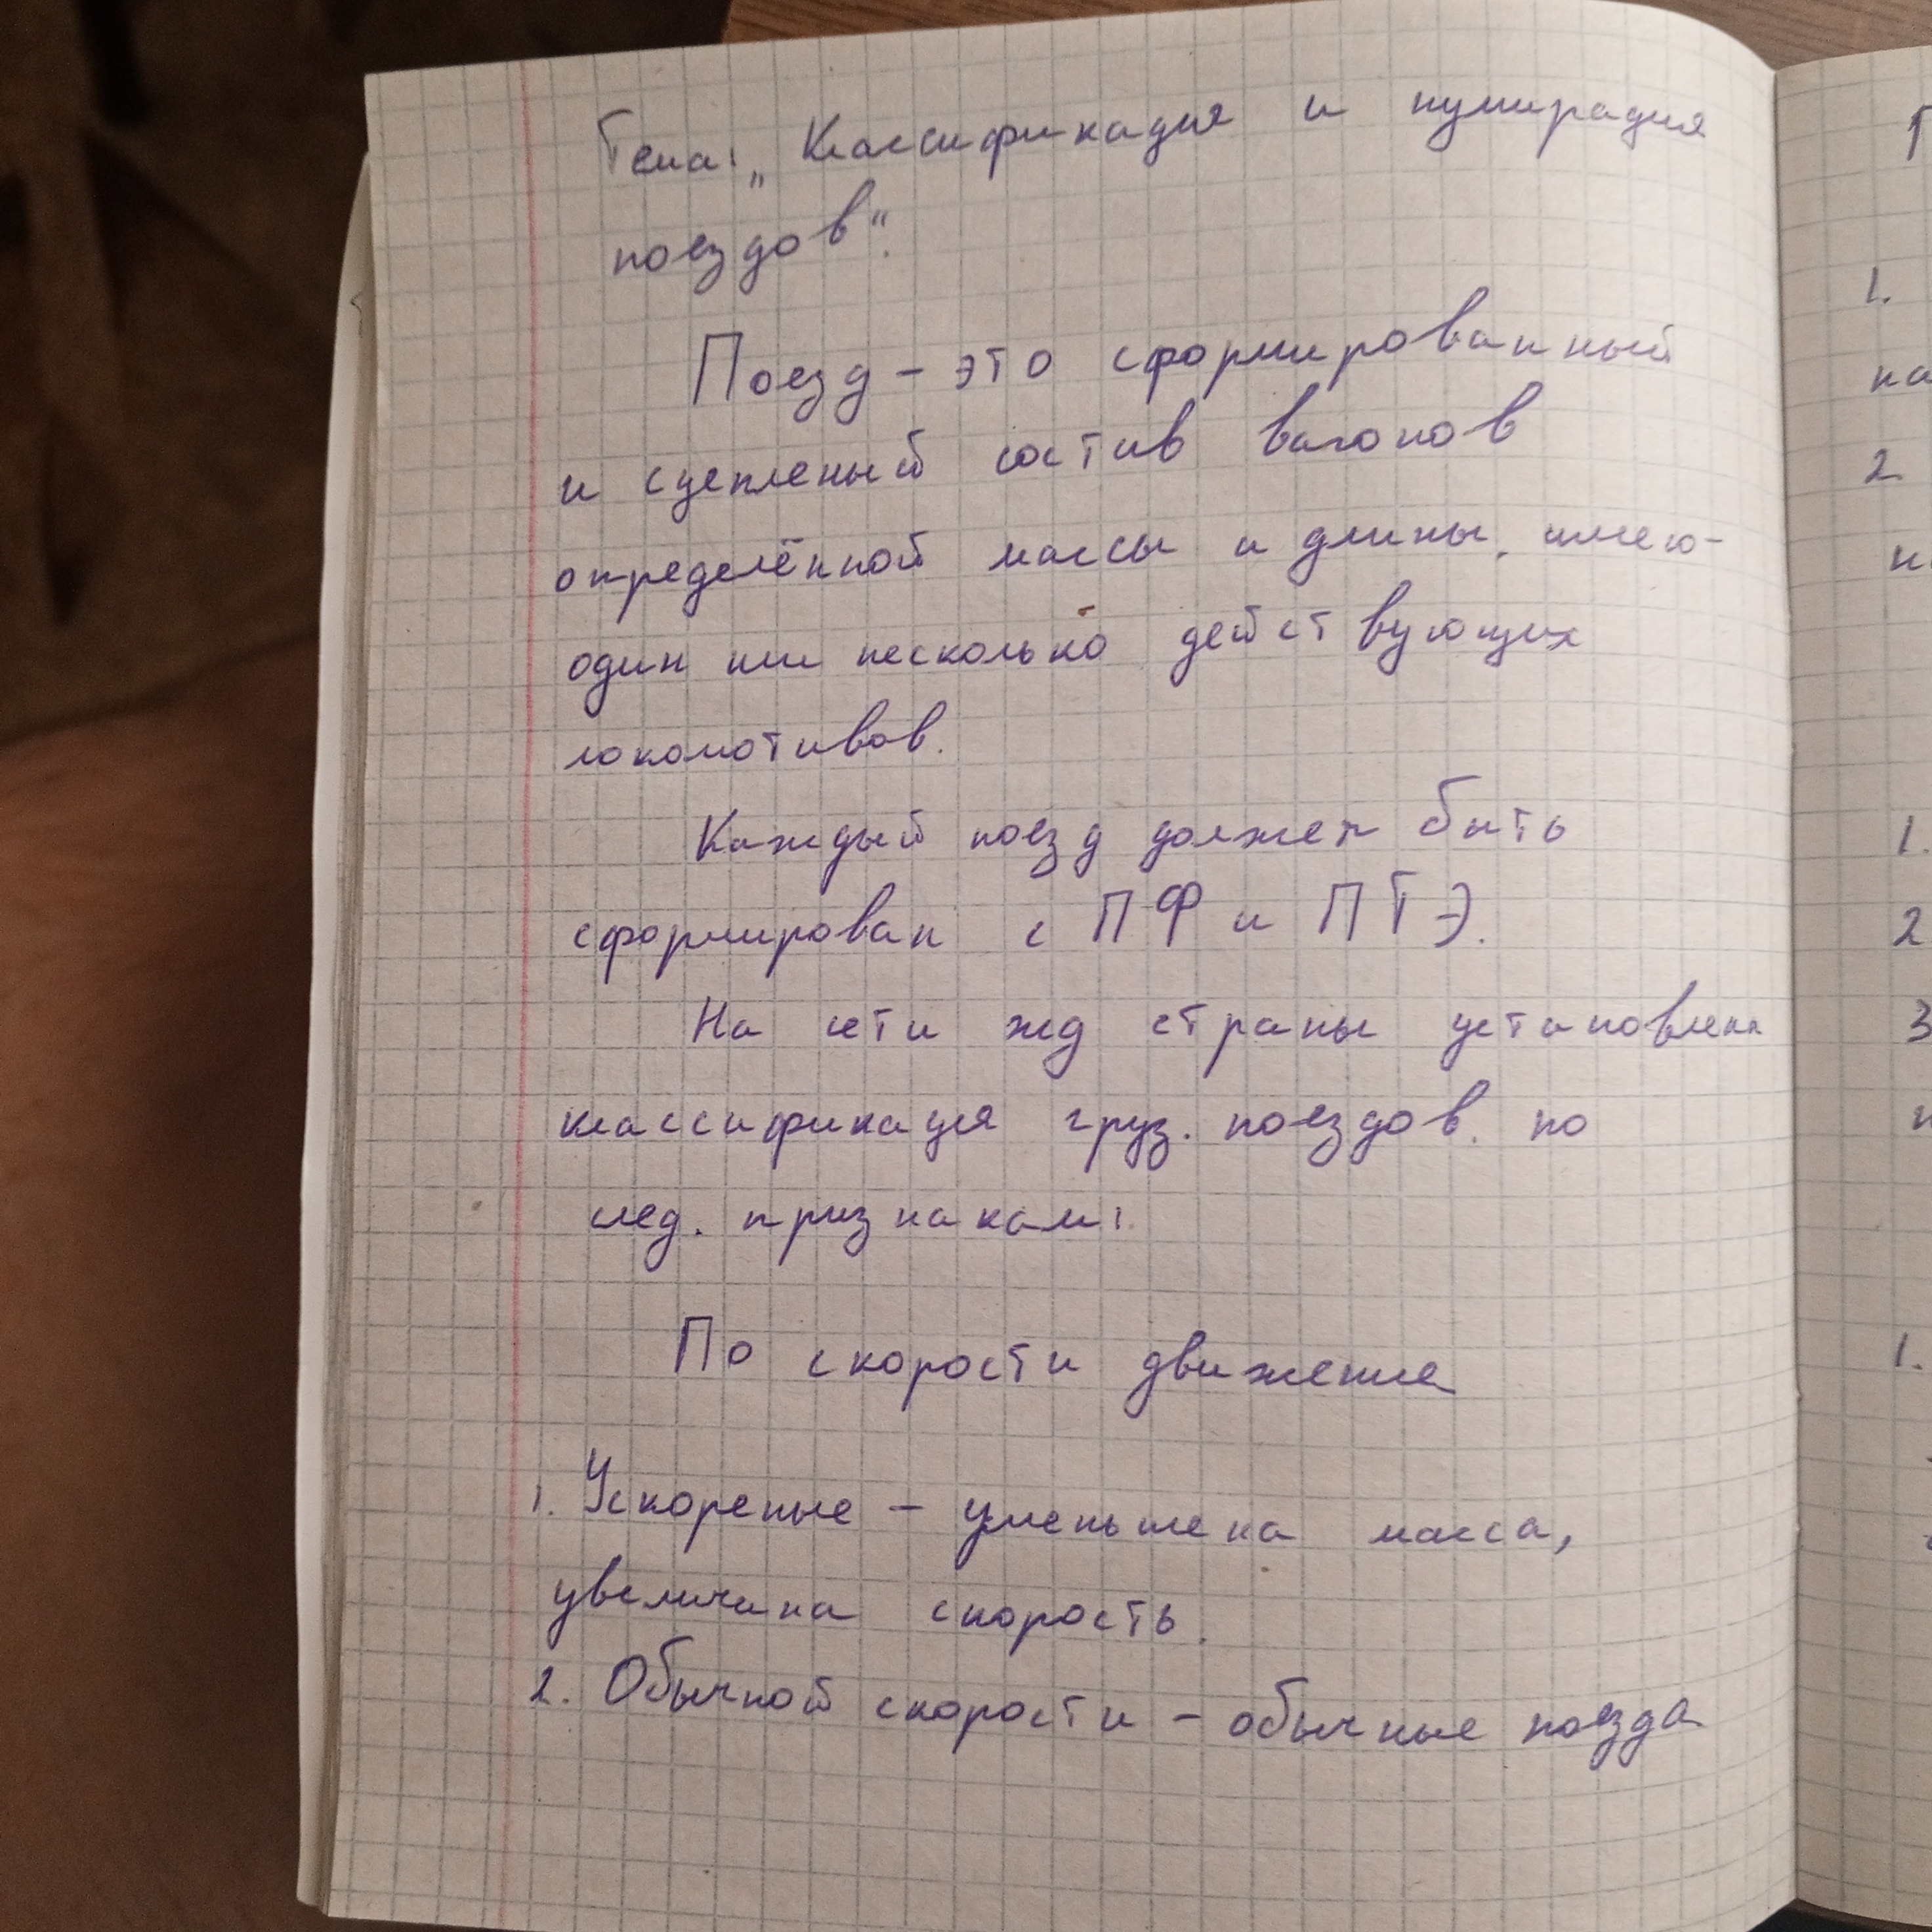 Тема: „Классификация и нумирация
поездов".
Поезд - это сформированный
и сцепленый состав вагонов
определённой массы и длины, имею-
один или несколько действующих
локомотивов.
Каждый поезд должен быть
сформирован с ПФ и ПТЭ.
На сети жд страны установлена
классификация груз. поездов. по
след. признакам:
По скорости движение
1. Ускореные - уменьшена масса,
увеличина скорость.
2. Обычной скорости - обычные поезда
1.
2
1.
2
3
1.